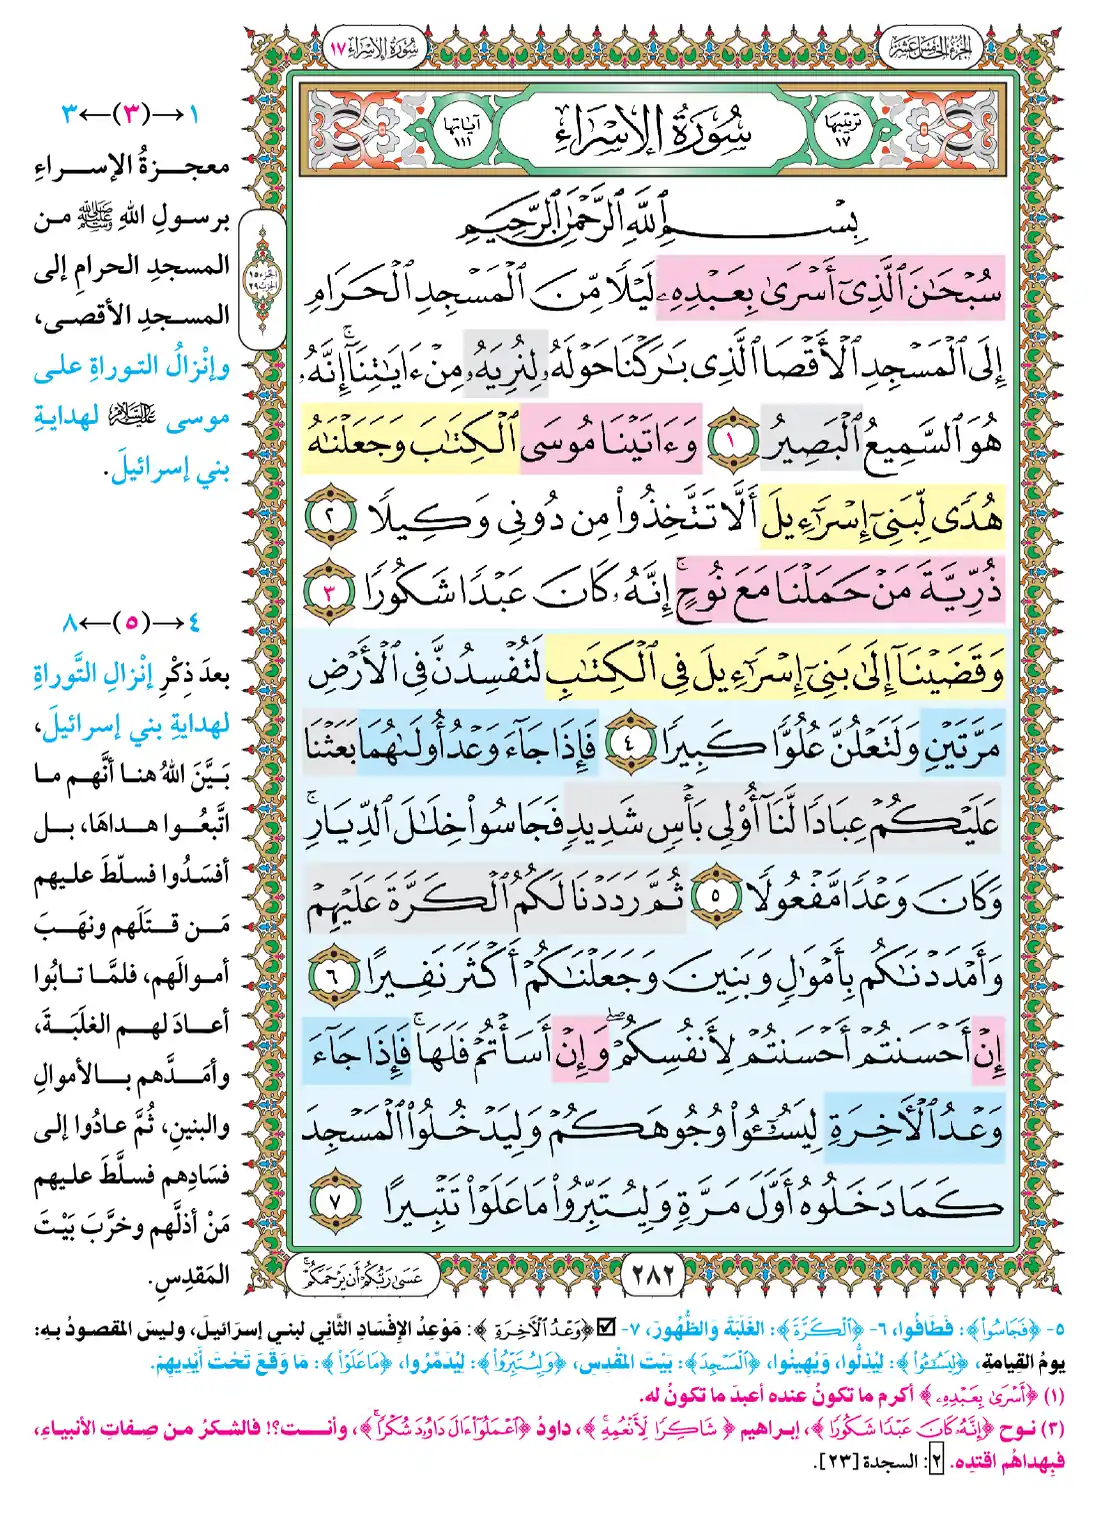 الجزء الخامس عشر
سورة الإسراء ١٧
ترتيبها ١٧
سُورَةُ الإِسْرَاءِ
آياتها ١١١
بِسْمِ ٱللَّهِ ٱلرَّحْمَٰنِ ٱلرَّحِيمِ
سُبْحَٰنَ ٱلَّذِىٓ أَسْرَىٰ بِعَبْدِهِۦ لَيْلًا مِّنَ ٱلْمَسْجِدِ ٱلْحَرَامِ
إِلَى ٱلْمَسْجِدِ ٱلْأَقْصَا ٱلَّذِى بَٰرَكْنَا حَوْلَهُۥ لِنُرِيَهُۥ مِنْ ءَايَٰتِنَآ ۚ إِنَّهُۥ
هُوَ ٱلسَّمِيعُ ٱلْبَصِيرُ ١ وَءَاتَيْنَا مُوسَى ٱلْكِتَٰبَ وَجَعَلْنَٰهُ
هُدًى لِّبَنِىٓ إِسْرَٰٓءِيلَ أَلَّا تَتَّخِذُوا۟ مِن دُونِى وَكِيلًا ٢
ذُرِّيَّةَ مَنْ حَمَلْنَا مَعَ نُوحٍ ۚ إِنَّهُۥ كَانَ عَبْدًا شَكُورًا ٣
وَقَضَيْنَآ إِلَىٰ بَنِىٓ إِسْرَٰٓءِيلَ فِى ٱلْكِتَٰبِ لَتُفْسِدُنَّ فِى ٱلْأَرْضِ
مَرَّتَيْنِ وَلَتَعْلُنَّ عُلُوًّا كَبِيرًا ٤ فَإِذَا جَآءَ وَعْدُ أُولَىٰهُمَا بَعَثْنَا
عَلَيْكُمْ عِبَادًا لَّنَآ أُو۟لِى بَأْسٍ شَدِيدٍ فَجَاسُوا۟ خِلَٰلَ ٱلدِّيَارِ ۚ
وَكَانَ وَعْدًا مَّفْعُولًا ٥ ثُمَّ رَدَدْنَا لَكُمُ ٱلْكَرَّةَ عَلَيْهِمْ
وَأَمْدَدْنَٰكُم بِأَمْوَٰلٍ وَبَنِينَ وَجَعَلْنَٰكُمْ أَكْثَرَ نَفِيرًا ٦
إِنْ أَحْسَنتُمْ أَحْسَنتُمْ لِأَنفُسِكُمْ ۖ وَإِنْ أَسَأْتُمْ فَلَهَا ۚ فَإِذَا جَآءَ
وَعْدُ ٱلْءَاخِرَةِ لِيَسُۥٓـُٔوا۟ وُجُوهَكُمْ وَلِيَدْخُلُوا۟ ٱلْمَسْجِدَ
كَمَا دَخَلُوهُ أَوَّلَ مَرَّةٍ وَلِيُتَبِّرُوا۟ مَا عَلَوْا۟ تَتْبِيرًا ٧
٢٨٢
عَسَىٰ رَبُّكُمْ أَن يَرْحَمَكُمْ ۚ
الجزء ١٥
الحزب ٢٩
١→(٣)←٣
معجزةُ الإسراءِ
برسولِ اللهِ ﷺ من
المسجدِ الحرامِ إلى
المسجدِ الأقصى،
وإنْزالُ التوراةِ على
موسى عليه السلام لهدايةِ
بني إسرائيلَ.
٤→(٥)←٨
بعدَ ذِكْرِ إنْزالِ التَّوراةِ
لهدايةِ بني إسرائيلَ،
بَيَّنَ اللهُ هنا أنَّهم ما
اتَّبعُوا هداهَا، بل
أفسَدُوا فسلّطَ عليهم
مَن قتَلَهم ونهَبَ
أموالَهم، فلمَّا تابُوا
أعادَ لهم الغلَبَةَ،
وأمَدَّهم بالأموالِ
والبنينِ، ثُمَّ عادُوا إلى
فسَادِهم فسلَّطَ عليهم
مَنْ أذلَّهم وخرَّبَ بَيْتَ
المَقدِسِ.
٥- ﴿فَجَاسُوا۟﴾: فَطَافُوا، ٦- ﴿ٱلْكَرَّةَ﴾: الغَلَبَةَ وَالظُّهُورَ، ٧- ☑ ﴿وَعْدُ ٱلْءَاخِرَةِ﴾: مَوْعِدُ الإِفْسَادِ الثَّانِي لبني إسرَائيلَ، وليسَ المَقصودُ بهِ:
يومُ القيامة، ﴿لِيَسُۥٓـُٔوا۟﴾: لِيُذِلُّوا، وَيُهِينُوا، ﴿ٱلْمَسْجِدَ﴾: بَيْتَ المَقْدِسِ، ﴿وَلِيُتَبِّرُوا۟﴾: لِيُدَمِّرُوا، ﴿مَا عَلَوْا۟﴾: مَا وَقَعَ تَحْتَ أَيْدِيهِمْ.
(١) ﴿أَسْرَىٰ بِعَبْدِهِۦ﴾ أكرم ما تكونُ عنده أعبدَ ما تكونُ له.
(٣) نوح ﴿إِنَّهُۥ كَانَ عَبْدًا شَكُورًا﴾، إبراهيم ﴿شَاكِرًا لِّأَنْعُمِهِ ۚ﴾، داودُ ﴿ٱعْمَلُوٓا۟ ءَالَ دَاوُۥدَ شُكْرًا ۚ﴾، وأنت؟! فالشكرُ من صِفاتِ الأنبياءِ،
فبِهداهُم اقتدِه. ٢: السجدة [٢٣].